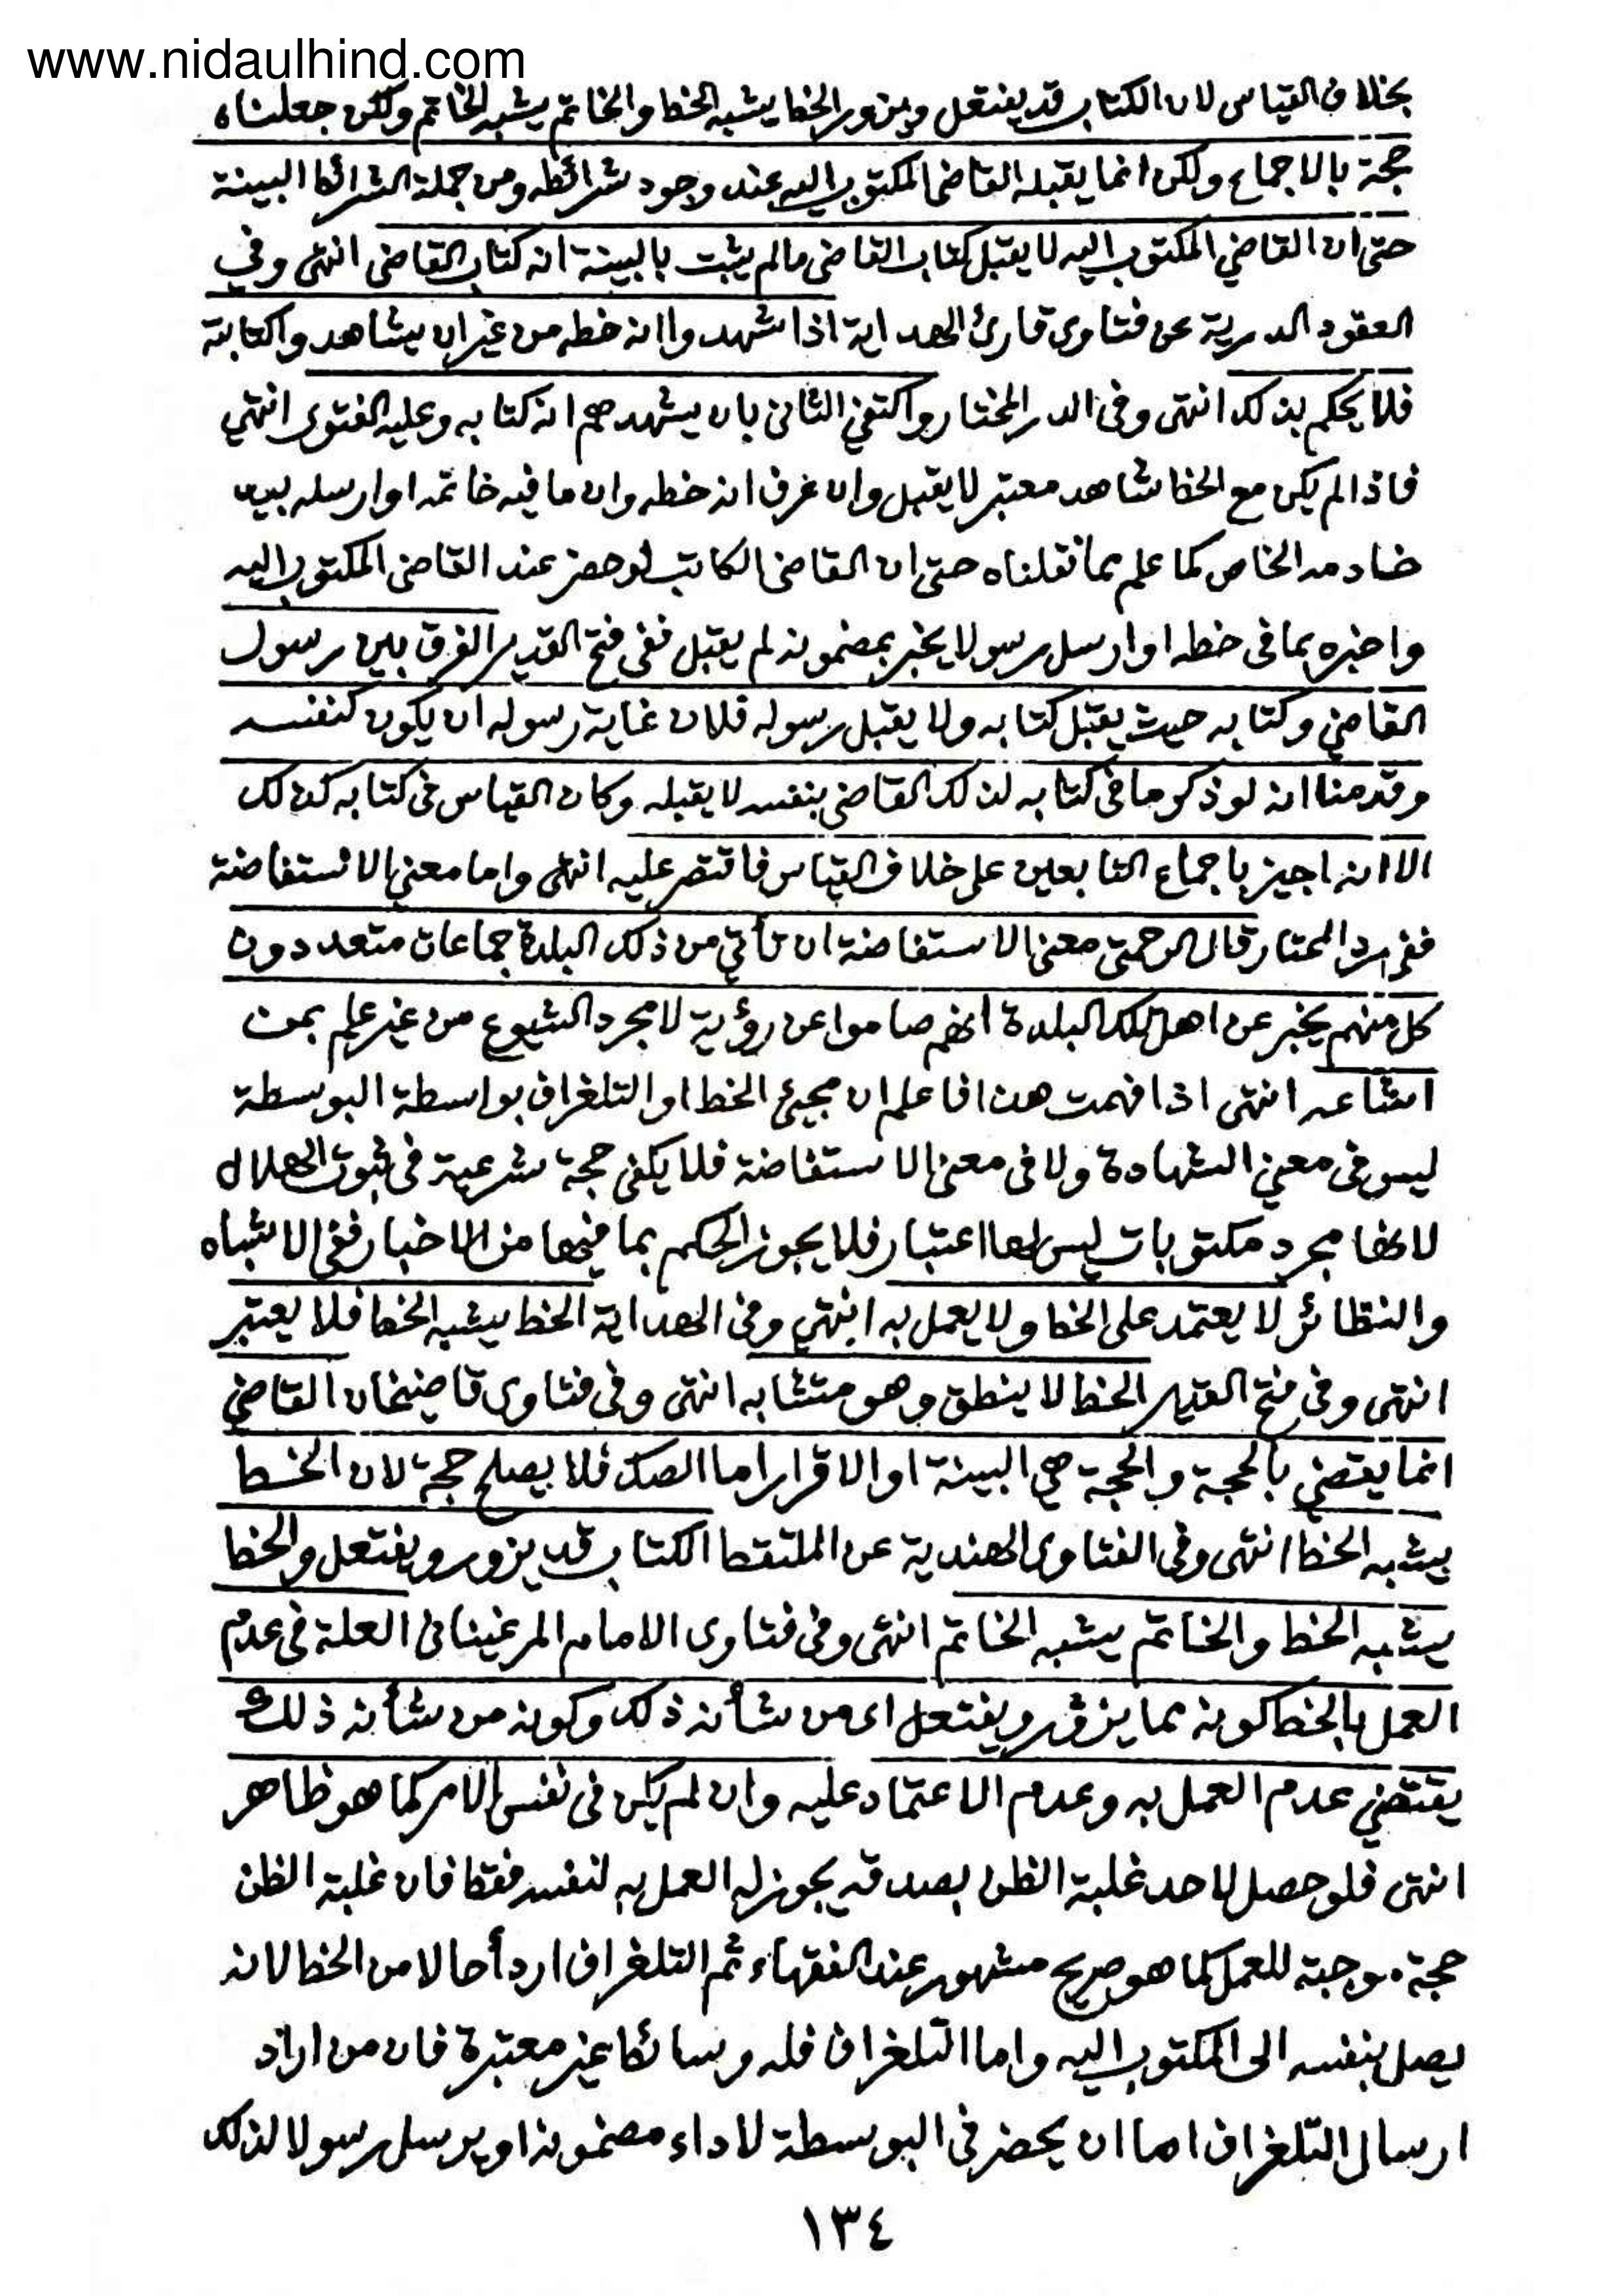 www.nidaulhind.com
بخلاف القياس لان الكتاب قد يفتعل ويزور الخط يشبه الخط والخاتم يشبه الخاتم ولكن جعلناه
حجة بالاجماع ولكن انما يقبله القاضي المكتوب اليه عند وجود شرائطه ومن جملة الشرائط البينة
حتى ان القاضي المكتوب اليه لا يقبل كتاب القاضي مالم يثبت بالبينة انه كتاب القاضي انتهى وفي
العقود الدرية عن فتاوى قارئ الهداية اذا شهدوا انه خطه من غير ان يشاهدوا كتابة
فلا يحكم بذلك انتهى وفى الدر المختار واكتفى الثانى بان يشهدهم انه كتابه وعليه الفتوى انتهى
فاذا لم يكن مع الخط شاهد معتبر لا يقبل وان عرف انه خطه وان ما فيه خاتمه او ارسله بيد
خادمه الخاص كما علم مما نقلناه حتى ان القاضى الكاتب لو حضر عند القاضى المكتوب اليه
واخبره بما فى خطه او ارسل رسولا يخبر بمضمونه لم يقبل ففى فتح القدير الفرق بين رسول
القاضي وكتابه حيث يقبل كتابه ولا يقبل رسوله فلان غاية رسوله ان يكون كنفسه
وقدمنا انه لو ذكر ما فى كتابه لذلك القاضى بنفسه لا يقبله وكان القياس فى كتابه كذلك
الا انه اجيز باجماع التابعين على خلاف القياس فاقتصر عليه انتهى واما معنى الاستفاضة
ففى رد المحتار قال الرحمتى معنى الاستفاضة ان تأتي من ذلك البلدة جماعات متعددون
كل منهم يخبر عن اهل تلك البلدة انهم صاموا عن رؤية لا مجرد الشيوع من غير علم بمن
اشاعه انتهى اذا فهمت هذا فاعلم ان مجيئ الخط او التلغراف بواسطة البوسطة
ليس فى معنى الشهادة ولا فى معنى الاستفاضة فلا يكفى حجة شرعية فى ثبوت الهلال
لانها مجرد مكتوبات ليس لها اعتبار فلا يجوز الحكم بما فيها من الاخبار ففى الاشباه
والنظائر لا يعتمد على الخط ولا يعمل به انتهى وفى الهداية الخط يشبه الخط فلا يعتبر
انتهى وفى فتح القدير الخط لا ينطق وهو متشابه انتهى وفى فتاوى قاضيخان القاضي
انما يقضي بالحجة والحجة هي البينة او الاقرار اما الصك فلا يصلح حجة لان الخط
يشبه الخط انتهى وفى الفتاوى الهندية عن الملتقط الكتاب قد يزور ويفتعل والخط
يشبه الخط والخاتم يشبه الخاتم انتهى وفى فتاوى الامام المرغينانى العلة فى عدم
العمل بالخط كونه مما يزور ويفتعل اى من شأنه ذلك وكونه من شأنه ذلك
يقتضي عدم العمل به وعدم الاعتماد عليه وان لم يكن فى نفس الامر كما هو ظاهر
انتهى فلو حصل لاحد غلبة الظن بصدقه يجوز له العمل به لنفسه فقط فان غلبة الظن
حجة موجبة للعمل كما هو صريح مشهور عند الفقهاء ثم التلغراف اردأ حالا من الخط لانه
يصل بنفسه الى المكتوب اليه واما التلغراف فله وسائط غير معتبرة فان من اراد
ارسال التلغراف اما ان يحضر فى البوسطة لاداء مضمونه او يرسل رسولا لذلك
١٣٤